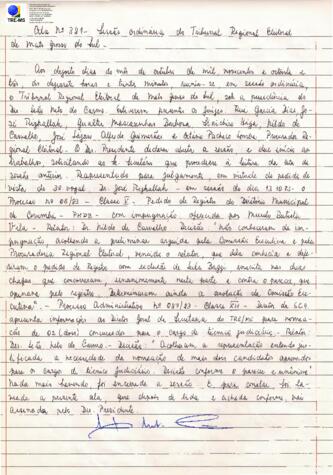 TRE-MS
Ata Nº 381 - Sessão ordinária do Tribunal Regional Eleitoral
de Mato Grosso do Sul.
Aos dezoito dias do mês de outubro de mil, novecentos e oitenta e
três, às dezoito horas e trinta minutos reuniu-se em sessão ordinária,
o Tribunal Regional Eleitoral de Mato Grosso do Sul, sob a presidência do
Des. Leão Neto do Carmo. Estiveram presente os Juízes Rui Garcia Dias, José
Higa, Nildo de
Carvalho, José Alfredo Guimarães e Otávio Pacheco Procurador Re-
gional Eleitoral. O Sr. Presidente declarou aberta a sessão e deu início aos
trabalhos, solicitando ao Sr. Secretário que procedesse à leitura da ata da
sessão anterior. Representando para julgamento, em virtude de pedido de
vista do 3º vogal Dr. José - em sessão do dia 13.10.83 - o
Processo Nº 08/83 - Classe - Pedido de Registro do Diretório Municipal
de Corumbá - com impugnação oferecida por Batista
Vila - Relator: Dr. Nildo de Carvalho. Decisão: "Não conheceram da im-
pugnação, acolhendo a preliminar arguida pela Comissão Executiva e pela
Procuradoria Regional Eleitoral, vencido o relator, que dela conhecia e defe-
riram o pedido de Registro com exclusão de inscrito nas duas
chapas que concorreram, unanimemente nesta parte e contra o parecer que
opinava pelo registro. Determinaram ainda a anulação da Comissão Exe-
cutiva." - Processo Administrativo Nº - Classe XII -
apresenta informação do Diretor Geral da Secretaria do TRE/MS para nomea-
ção de 02 (dois) concursados para o cargo de técnico judiciário. Relator:
Des. Leão Neto do Carmo - Decisão: "Acolheram a representação entendendo jus-
tificada a necessidade da nomeação de mais dois candidatos aprovados
para o cargo de técnico Judiciário. Decisão conforme o parecer e unânime."
Nada mais havendo, foi encerrada a sessão. E, para constar foi la-
vrada a presente ata, que depois de lida e achada conforme, vai
assinada pelo Des. Presidente.